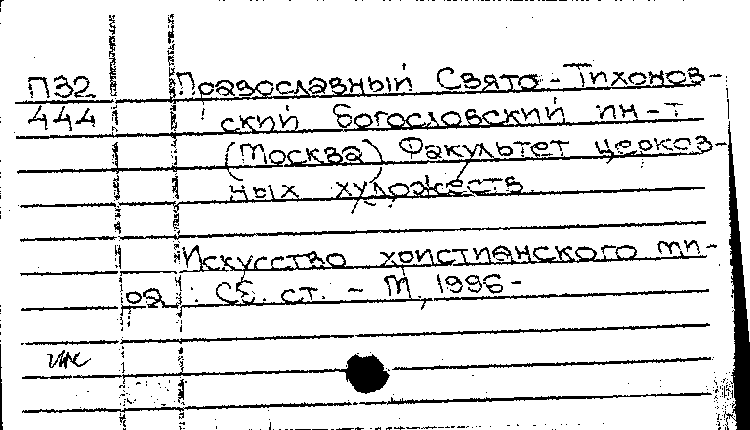 П32 Православный Свято-Тихонов-
444 ский богословский ин-т
(Москва) Факультет церков-
ных художеств.
Искусство христианского ми-
ра : Сб. ст. - М, 1996-